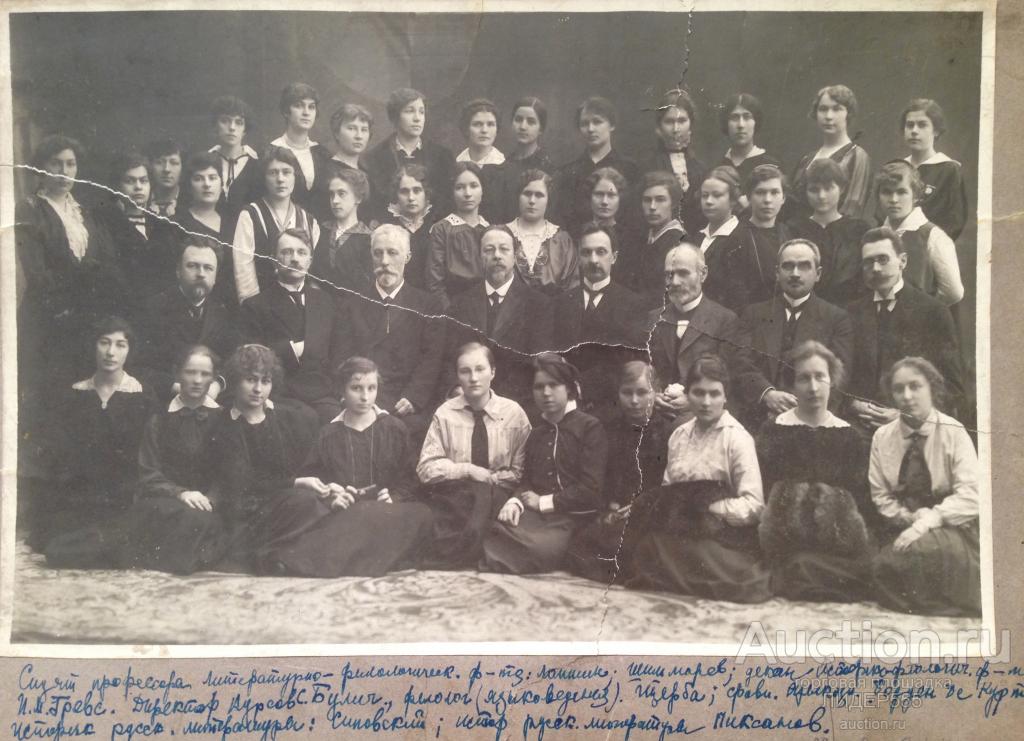 Сидят профессора литературно-филологическ. ф-та: Лапшин, Шишмарев, декан историко-филологич. ф-та
И.М. Гревс. Директор курсов С. Булич, филолог (языковедение). Щерба; сравн. Бодуэн де Курт
историк русск. литературы: Сиповский; истор русск. литературы Пиксанов.
Auction.ru
торговая площадка
ЛИДЕР98
auction.ru